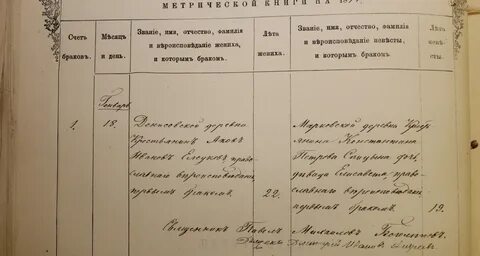 МЕТРИЧЕСКОЙ КНИГИ НА 187
Счетъ браковъ.
Мѣсяцъ и день.
Званіе, имя, отчество, фамилія и вѣроисповѣданіе жениха, и которымъ бракомъ.
Лѣта жениха.
Званіе, имя, отчество, фамилія и вѣроисповѣданіе невѣсты, и которымъ бракомъ.
Лѣта невѣсты.
Генварь
1.
18.
Денисовской деревни
крестьянинъ Яковъ
Ивановъ православнаго
вѣроисповѣданія
первымъ бракомъ.
22.
Марковской деревни
Константина
Петрова дѣвица Елисавета, православнаго
вѣроисповѣданія
первымъ бракомъ.
19.
Священникъ Павелъ Михайловъ
Дмитрій Ивановъ